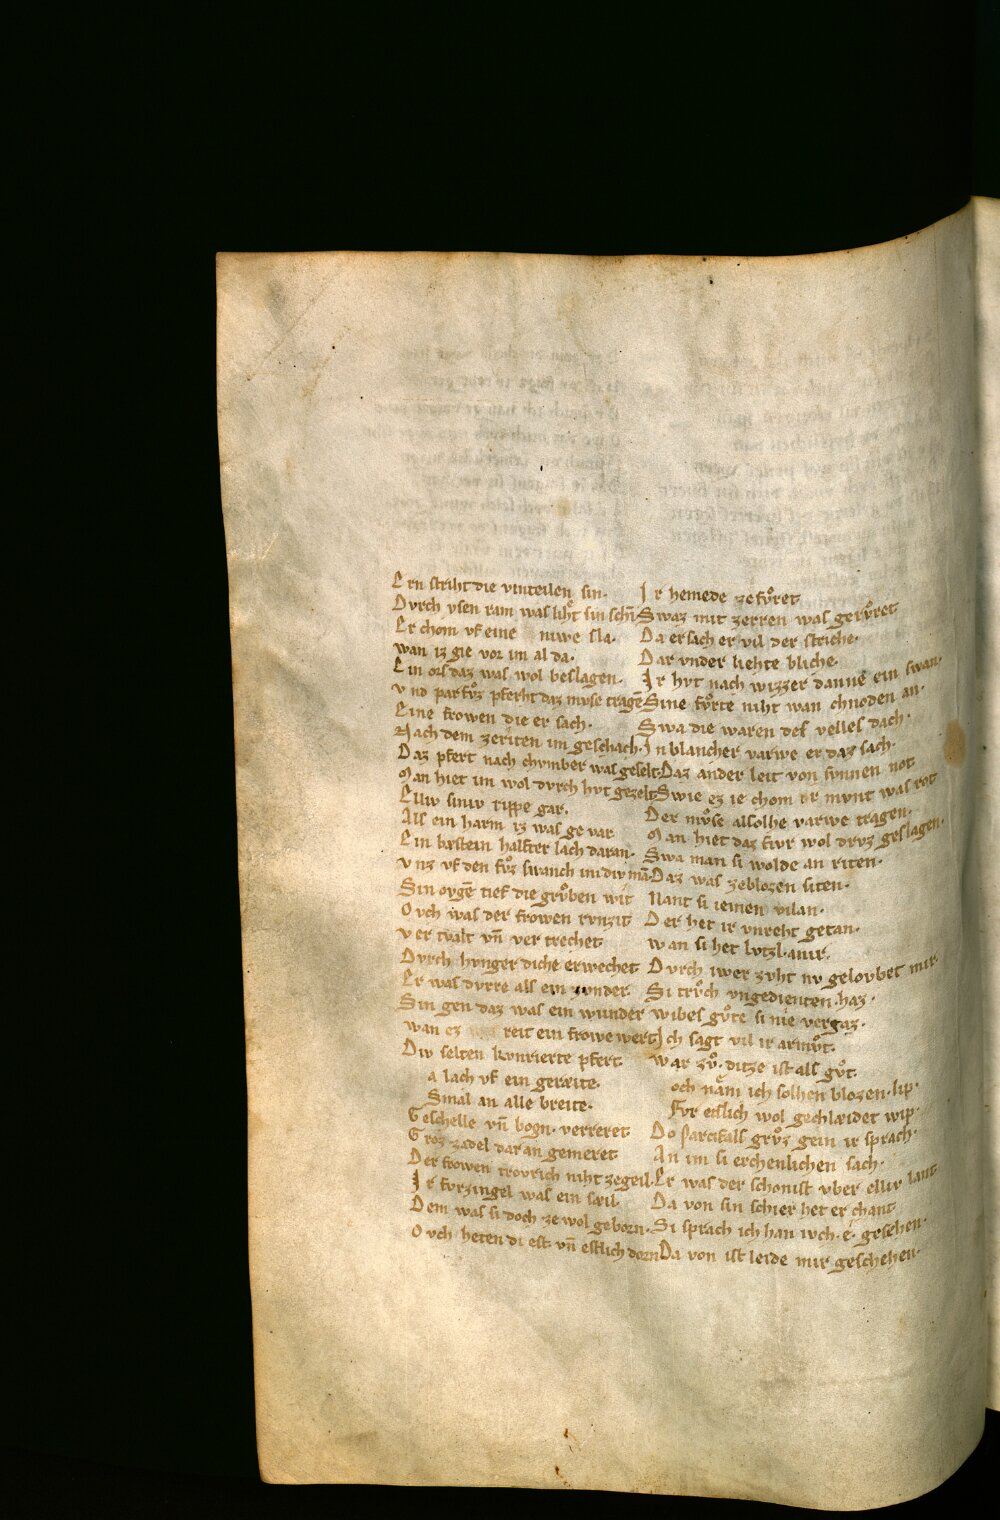 Ern striht die vinteilen sin.
Dvrch ysen ram was lihͦt sin schin
Er chom vf eine niwe sla.
wan iz gie vor im al da.
Ein ors daz was wol beslagen.
vnd parfvͦz pferht daz mvse tragē
Eine frowen die er sach.
Nach dem zeriten im geschach.
Daz pfert nach chvmber was geselt.
Man hiet im wol dvrch hvt gezelt
Elliv siniv rippe gar.
Als ein harm iz was ge var
Ein bæstein halfter lach daran.
vnz vf den fvͦz swanch im div man
Sin ovgē tief die grvͦben wit
Ovch was der frowen rvnzit
ver twalt vn̄ ver trechet
Dvrch hvnger diche erwechet
Er was dvrre als ein zvnder.
Sin gen daz was ein wunder
wan ez reit ein frowe wert
Div selten kvnrierte pfert.
a lach vf ein geræite.
Smal an alle breite.
Geschelle vn̄ bogn. verreret
Groz zadel dar an gemeret
Der frowen trovrich niht zegeil.
Ir fvrzingel was ein sæil
Dem was si doch ze wol geborn.
Ovch heten di est vn̄ estlich dorn
Ir hemede ze fvͦret
Swaz mit zerren was gervͦret
Da ersach er vil der striche.
Dar vnder liehte bliche.
Ir hvt nach wizzer danne ein swan.
Sine fvͦrte niht wan chnoden an.
Swa die waren des velles dach.
In blancher varwe er daz sach.
Daz ander leit von svnnen not
Swie ez ie chom ir mvnt was rot
Der mvͦse alsolhe varwe tragen.
Man hiet daz fivr wol drvz geslagen.
Swa man si wolde an riten.
Daz was zeblozen siten.
Nant si iemen vilan.
Der het ir vnreht getan.
wan si het lvtzl. anir.
Dvrch iwer zvht nv gelovbet mir
Si trvͦch vngedienten. haz.
wibes gvͦte si nie vergaz.
Ich sagt vil ir armvͦt.
war zvͦ. ditze ist als gvͦt.
och næm ich solhen blozen. lip.
Fvr etslich wol gechlæidet wip.
Do Parcifals grvͦz gein ir sprach.
An im si erchenlichen sach.
Er was der schonist vber elliv lant
Da von sin schier het er chant
Si sprach ich han ivch. e. gesehen.
Da von ist leide mir geschehen.